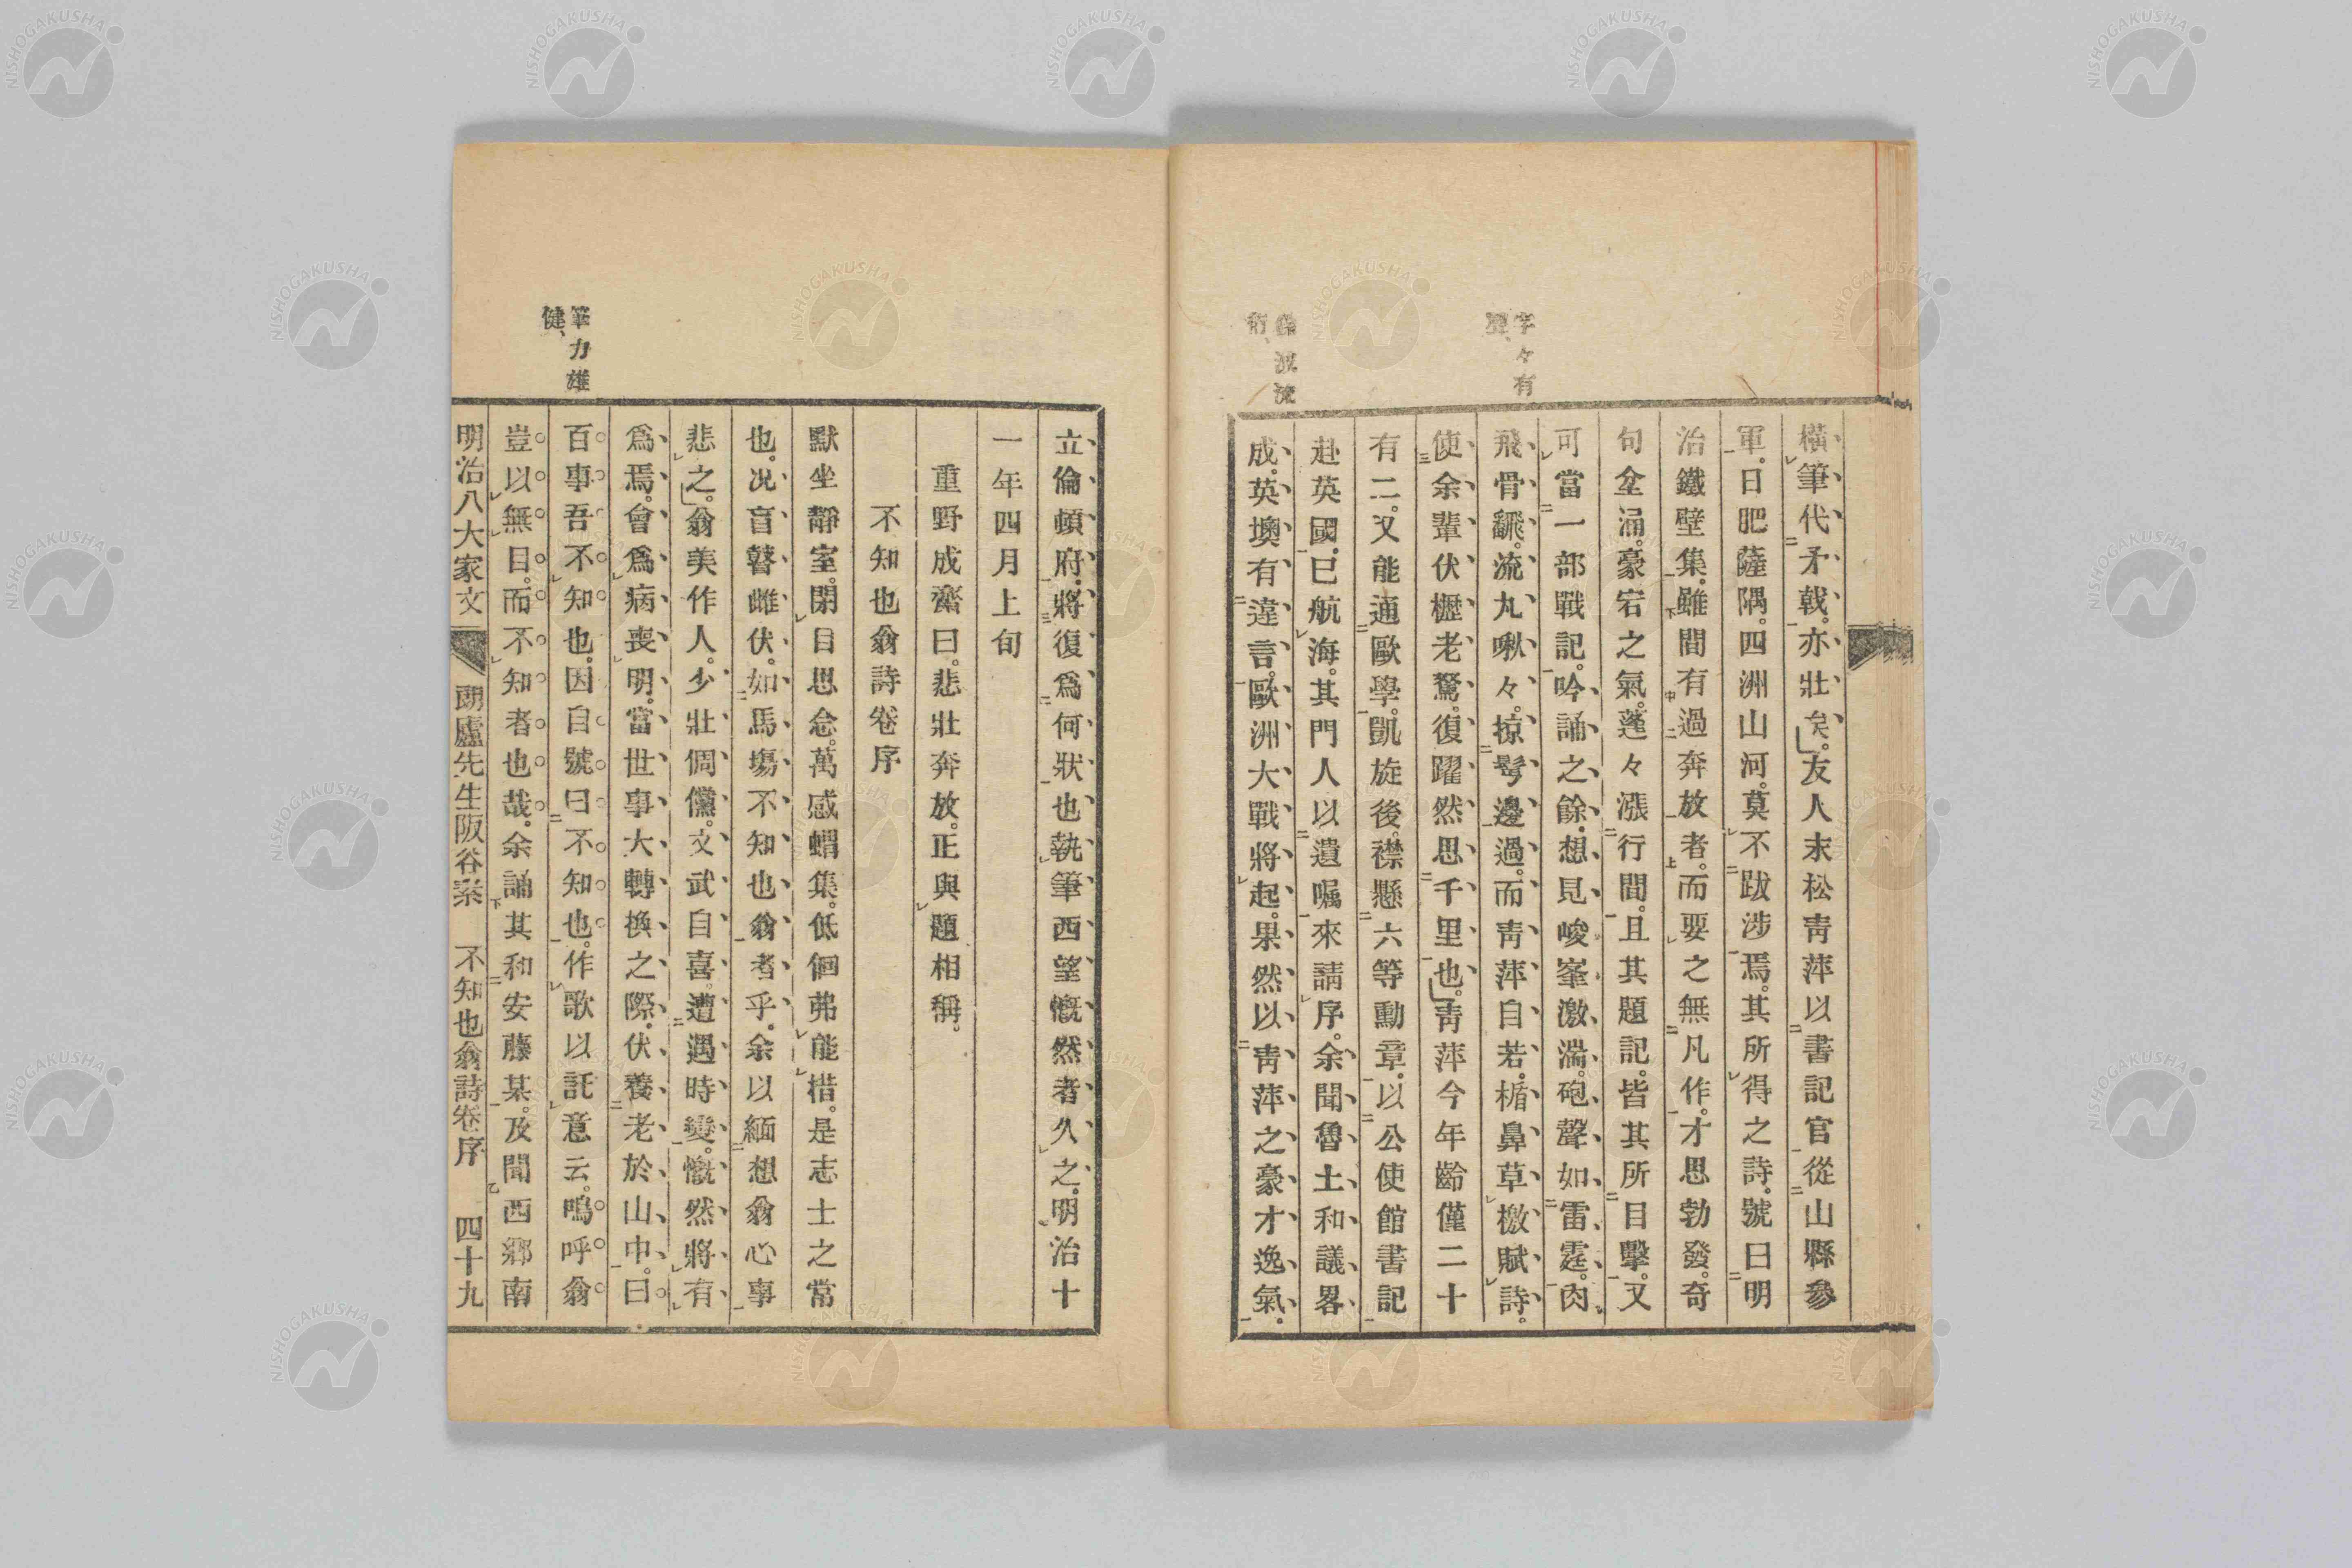 字々有
聲、
餘波流
衍、
橫筆代矛戟。亦壯矣。友人末松靑萍以書記官從山縣參
軍。日肥薩隅。四洲山河。莫不跋涉焉。其所得之詩。號曰明
治鐵壁集。雖間有過奔放者。而要之無凡作。才思勃發。奇
句坌涌。豪宕之氣。蓬々漲行間。且其題記。皆其所目擊。又
可當一部戰記。吟誦之餘。想見峻峯激湍。砲聲如雷霆。肉
飛骨飜。流丸啾々。掠髩邊過。而靑萍自若。楯鼻草檄賦詩。
使余輩伏櫪老駑。復躍然思千里也。靑萍今年齡僅二十
有二。又能通歐學。凱旋後。襟懸六等勳章。以公使館書記
赴英國。已航海。其門人以遺囑來請序。余聞魯土和議畧
成。英墺有違言。歐洲大戰將起。果然以靑萍之豪才逸氣。
立倫頓府。將復爲何狀也執筆西望慨然者久之。明治十
一年四月上旬
重野成齋曰。悲壯奔放。正與題相稱。
不知也翁詩卷序
默坐靜室。閉目思念。萬感蝟集。低徊弗能措。是志士之常
也。况盲瞽雌伏。如馬塲不知也翁者乎。余以緬想翁心事
悲之。翁美作人。少壯倜儻。文武自喜。遭遇時變。慨然將有
爲焉。會爲病喪明。當世事大轉換之際。伏養老於山中。曰
百事吾不知也。因自號曰不知也。作歌以託意云。嗚呼翁
豈以無目。而不知者也哉。余誦其和安藤某。及聞西鄕南
筆力雄
健、
明治八大家文 朗廬先生阪谷素 不知也翁詩卷序 四十九
NISHOGAKUSHA